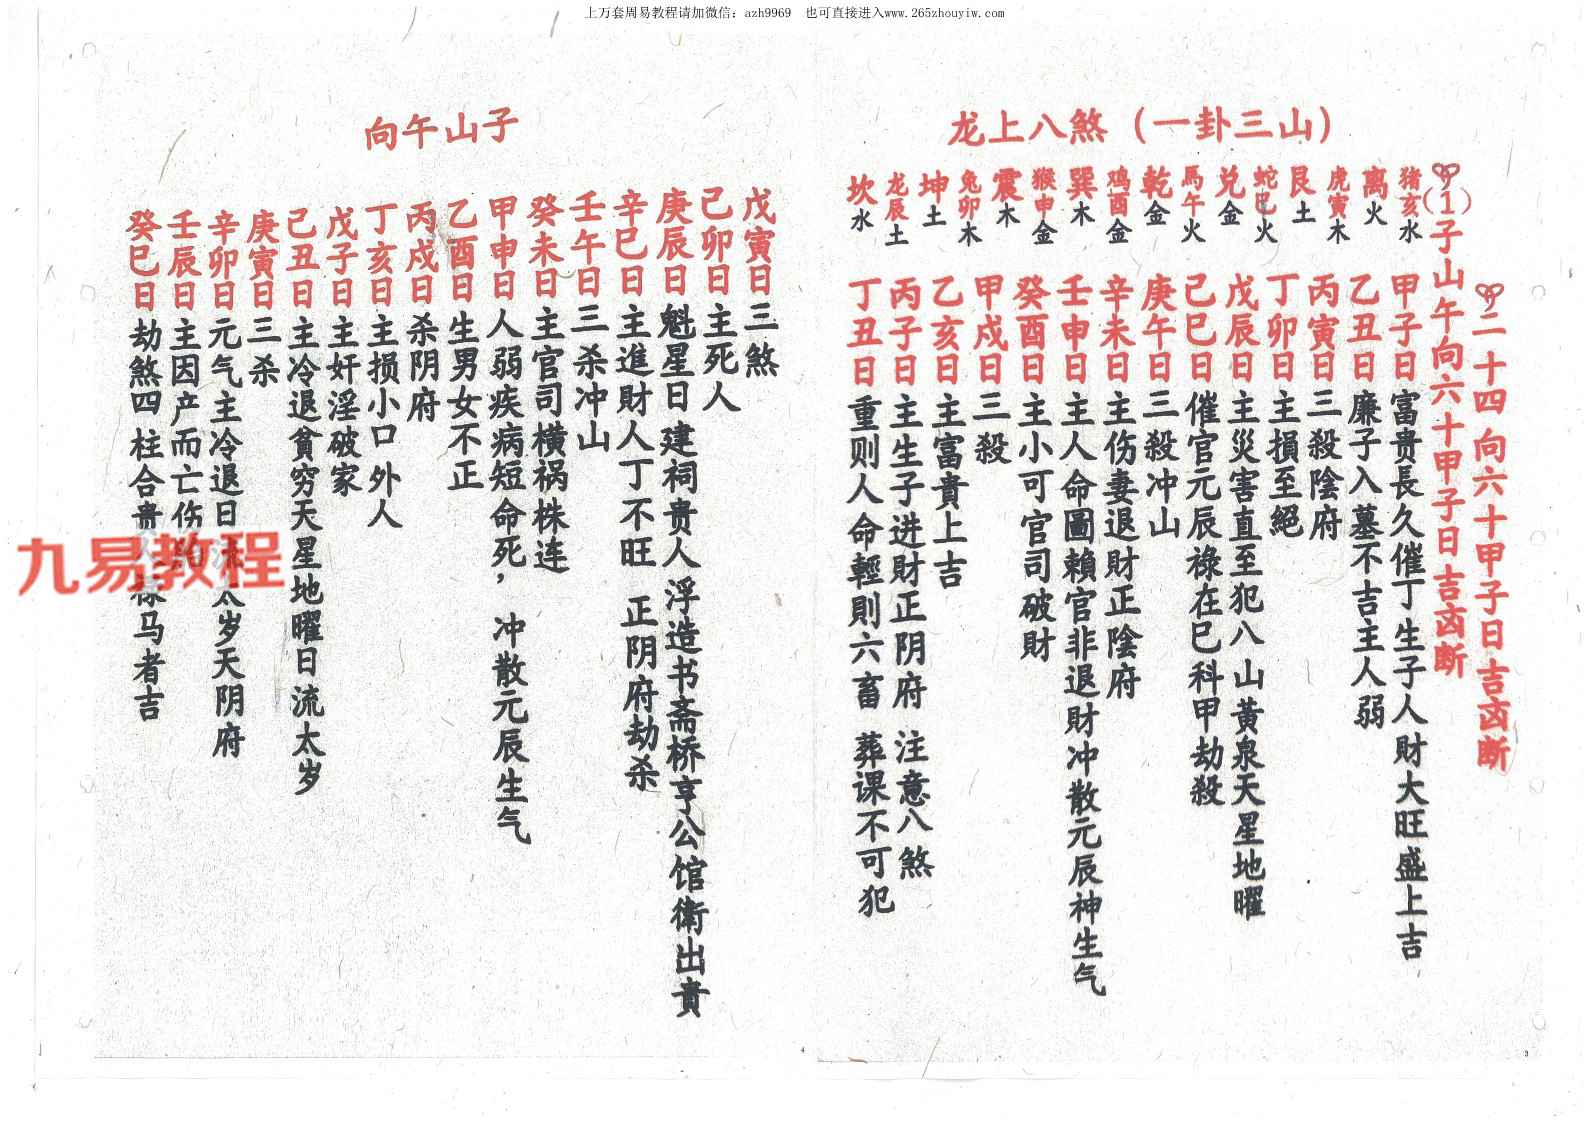 上万套周易教程请加微信：azh9969 也可直接进入www.265zhouyiw.com
龙上八煞（一卦三山）
二十四向六十甲子日吉凶断
（1）子山午向六十甲子日吉凶断
猪亥水
离火
虎寅木
艮土
蛇巳火
兑金
馬午火
乾金
鸡酉金
巽木
猴申金
震木
兔卯木
坤土
龙辰土
坎水
甲子日富贵長久催丁生子人財大旺盛上吉
乙丑日廉子入墓不吉主人弱
丙寅日三殺陰府
丁卯日主損至絕
戊辰日主災害直至犯八山黃泉天星地曜
己巳日催官元辰祿在巳科甲劫殺
庚午日三殺冲山
辛未日主伤妻退財正陰府
壬申日主人命圖賴官非退財冲散元辰神生气
癸酉日主小可官司破財
甲戍日三殺
乙亥日主富貴上吉
丙子日主生子进財正阴府 注意八煞
丁丑日重则人命輕則六畜 葬课不可犯
3
向午山子
戊寅日三煞
己卯日主死人
庚辰日魁星日建祠贵人浮造书斋桥亨公馆衛出貴
辛巳日主進財人丁不旺 正阴府劫杀
壬午日三杀冲山
癸未日主官司横祸株连
甲申日人弱疾病短命死，冲散元辰生气
乙酉日生男女不正
丙戍日杀阴府
丁亥日主损小口外人
戊子日主奸淫破家
己丑日主冷退貧穷天星地曜日流太岁
庚寅日三杀
辛卯日元气主冷退日流太岁天阴府
壬辰日主因产而亡伤
癸巳日劫煞四柱合贵禄马者吉
九易教程
4